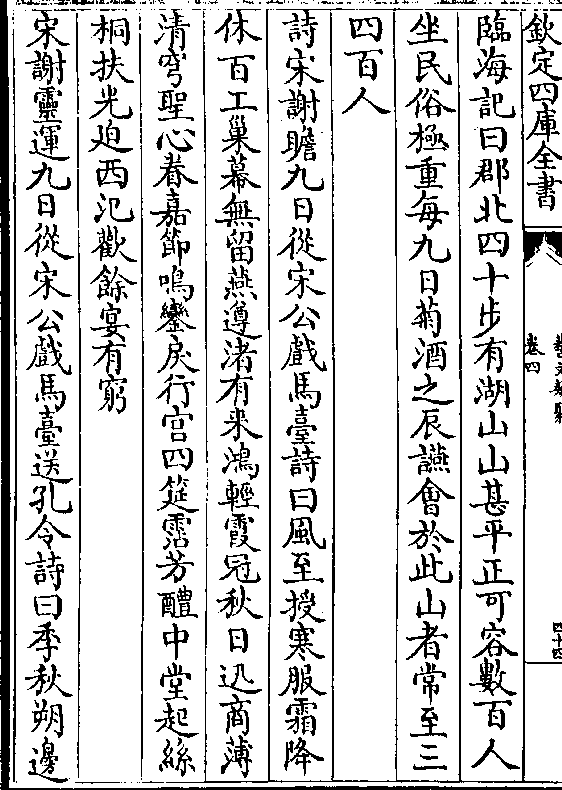 欽定四庫全書
藝文類聚
卷四
四十四
臨海記曰郡北四十步有湖山山甚平正可容數百人
坐民俗極重每九日菊酒之辰讌會於此山者常至三
四百人
詩宋謝瞻九日從宋公戲馬臺詩曰風至授寒服霜降
休百工巢幕無留燕遵渚有来鴻輕霞冠秋日迅商薄
清穹聖心眷嘉節鳴鑾戾行宫四筵霑芳醴中堂起絲
桐扶光迫西汜歡餘宴有窮
宋謝靈運九日從宋公戲馬臺送孔令詩曰季秋朔邊